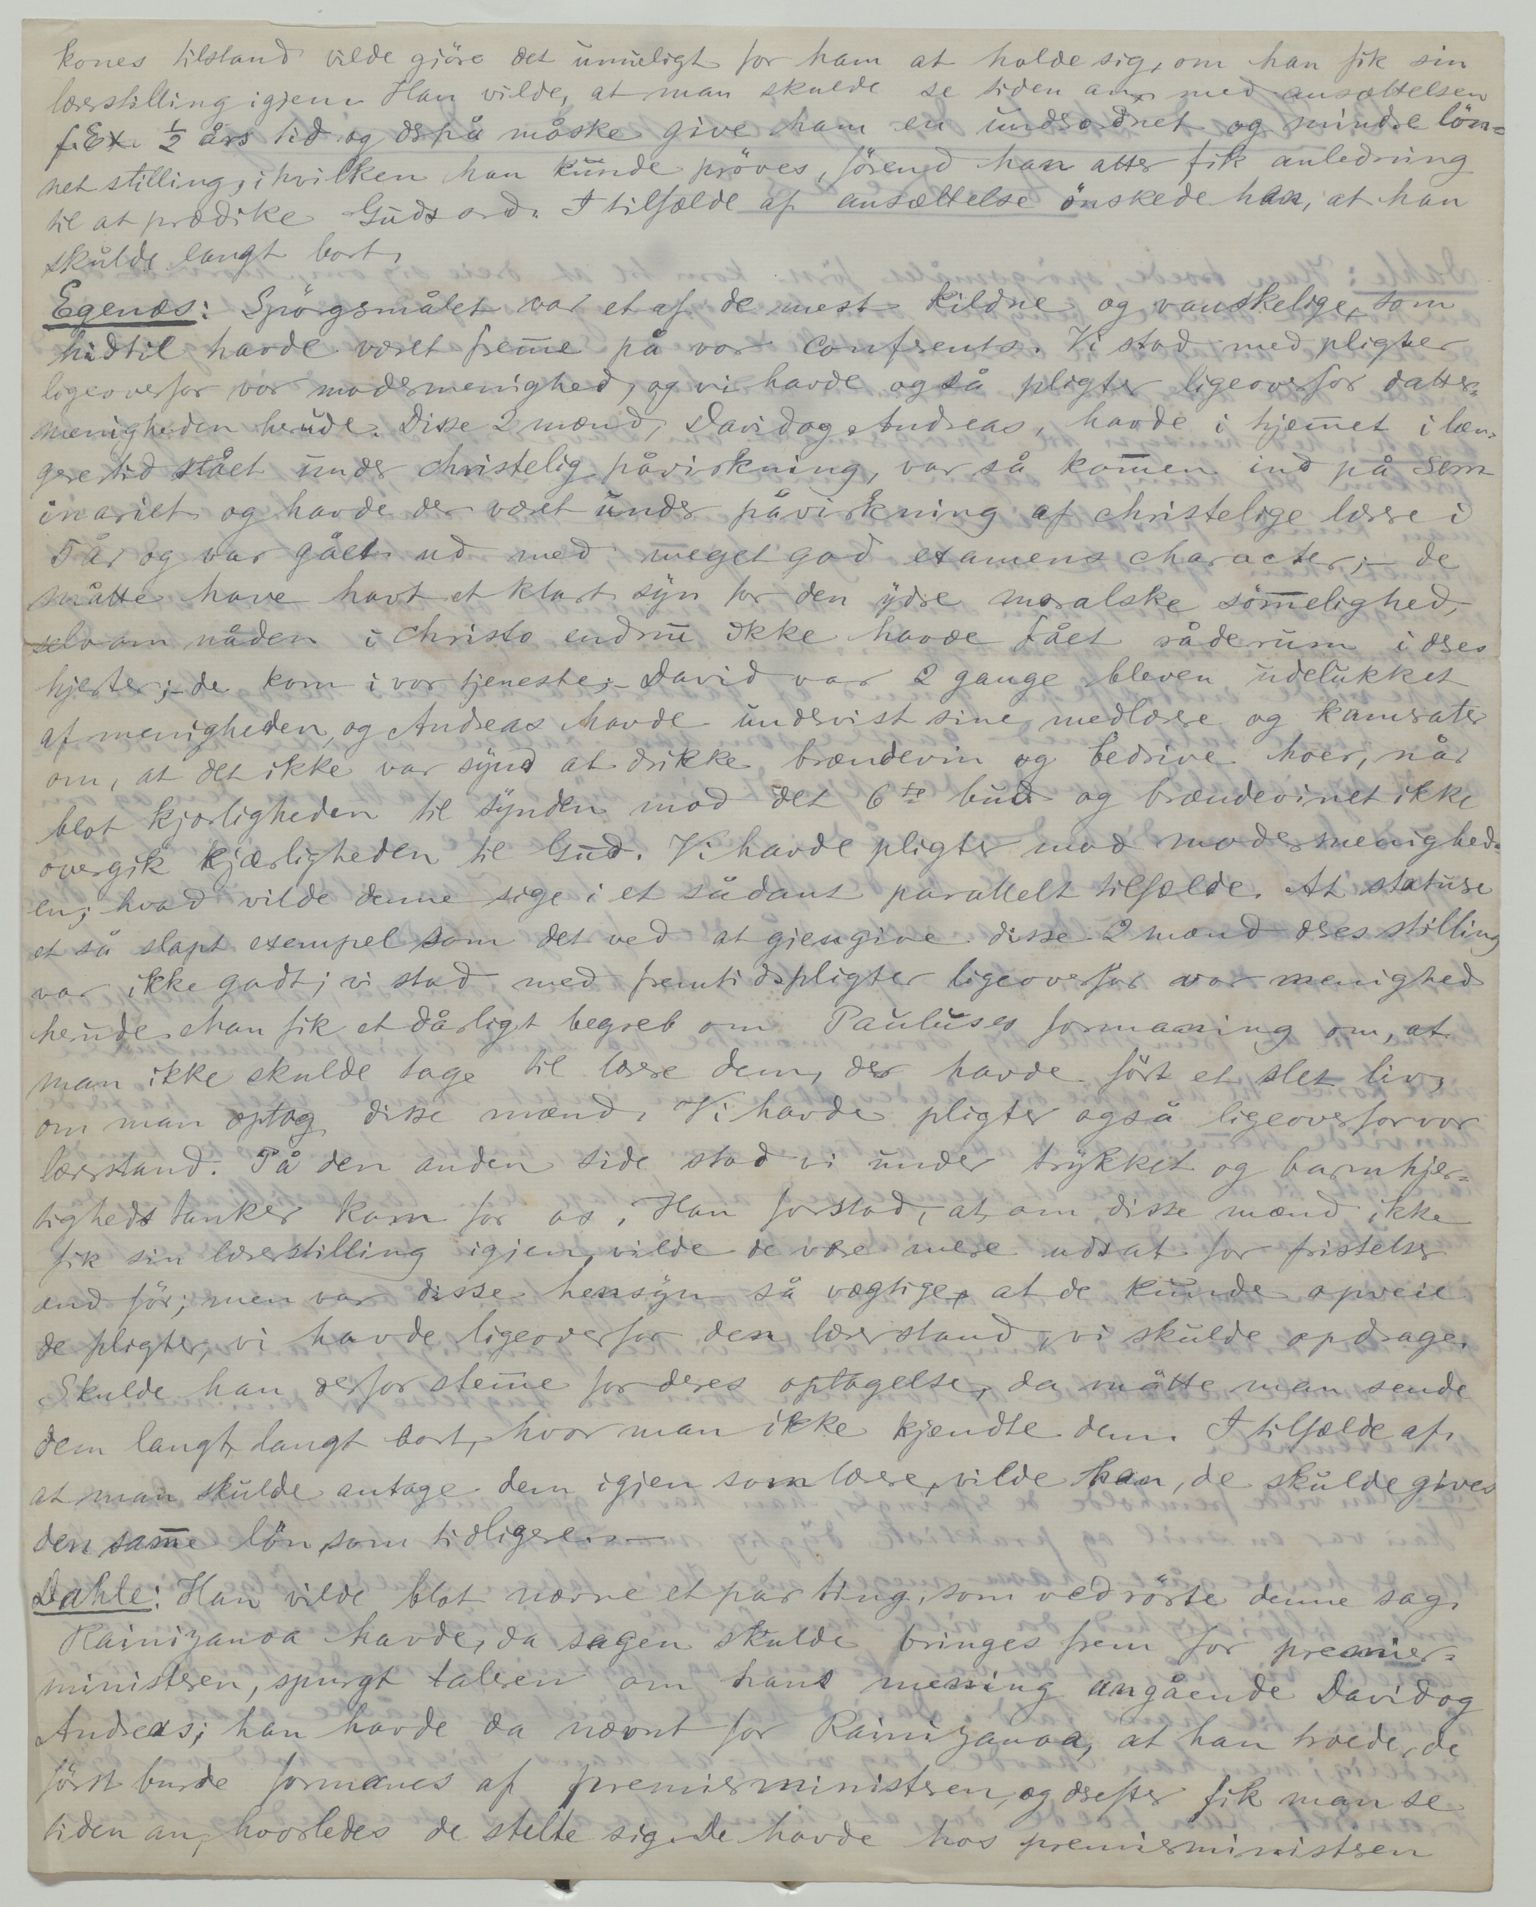 kones tilstand vilde gjöre det umueligt for ham at holde sig, om han fik sin
lærerstilling igjen. Han vilde, at man skulde se tiden an, med ansættelsen
f.Ex. ½ års tid og derpå måske give ham en underordnet og mindre lön=
net stilling, i hvilken han kunde pröves, förend han atter fik anledning
til at prædike Guds ord. I tilfælde af ansættelse önskede han, at han
skulde langt bort.
Egenæs: Spörgsmålet var et af de mest kildne og vanskelige, som
hidtil havde været fremme på vor conferents. Vi stod med pligter
ligeoverfor vor modermenighed, og vi havde også pligter ligeoverfor datter=
menigheden herude. Disse 2 mænd, David og Andreas, havde i hjemmet i læn=
gere tid stået under christelig påvirkning, var så kommen ind på sem=
inariet og havde der været under påvirkning af christelige lærere i
5 år og var gået ud med meget god examens character; – de
måtte have havt et klart syn for den ydre moralske sömmelighed,
selv om nåden i Christo endnu ikke havde fået råderum i deres
hjerter; – de kom i vor tjeneste; – David var 2 gange bleven udelukket
af menigheden, og Andreas havde undervist sine medlærere og kamerater
om, at det ikke var synd at drikke brændevin og bedrive hoer, når
blot kjærligheden til synden mod det 6te bud og brændevinet ikke
overgik kjærligheden til Gud. Vi havde pligter mod modermenighed=
en; hvad vilde denne sige i et sådant parallelt tilfælde. At statuere
et så slapt exempel som det ved at gjengive disse 2 mænd deres stilling
var ikke godt; vi stod med fremtidspligter ligeoverfor vor menighed
herude. Man fik et dårligt begreb om Pauluses formaning om, at
man ikke skulde tage til lærere dem, der havde fört et slet liv,
om man optog disse mænd. Vi havde pligter også ligeoverfor vor
lærerstand. På den anden side stod vi under trykket og barmhjer=
tigheds tanker kom for os. Han forstod, at om disse mænd ikke
fik sin lærerstilling igjen, vilde de være mere udsat for fristelser
end för; men var disse hensyn så vægtige, at de kunde opveie
de pligter, vi havde ligeoverfor den lærerstand, vi skulde opdrage.
Skulde han derfor stemme for deres optagelse, da måtte man sende
dem langt, langt bort, hvor man ikke kjendte dem. I tilfælde af,
at man skulde antage dem igjen som lærere, vilde han, de skulde gives
den samme lön, som tidligere. –
Dahle: Han vilde blot nævne et par ting, som vedrörte denne sag.
Rainizanoa havde, da sagen skulde bringes frem for premier=
ministeren, spurgt taleren om hans mening angående David og
Andreas; han havde da nævnt for Rainizanoa, at han troede, de
först burde formanes af premierministeren, og derefter fik man se
tiden an, hvorledes de stelte sig. De havde hos premierministeren